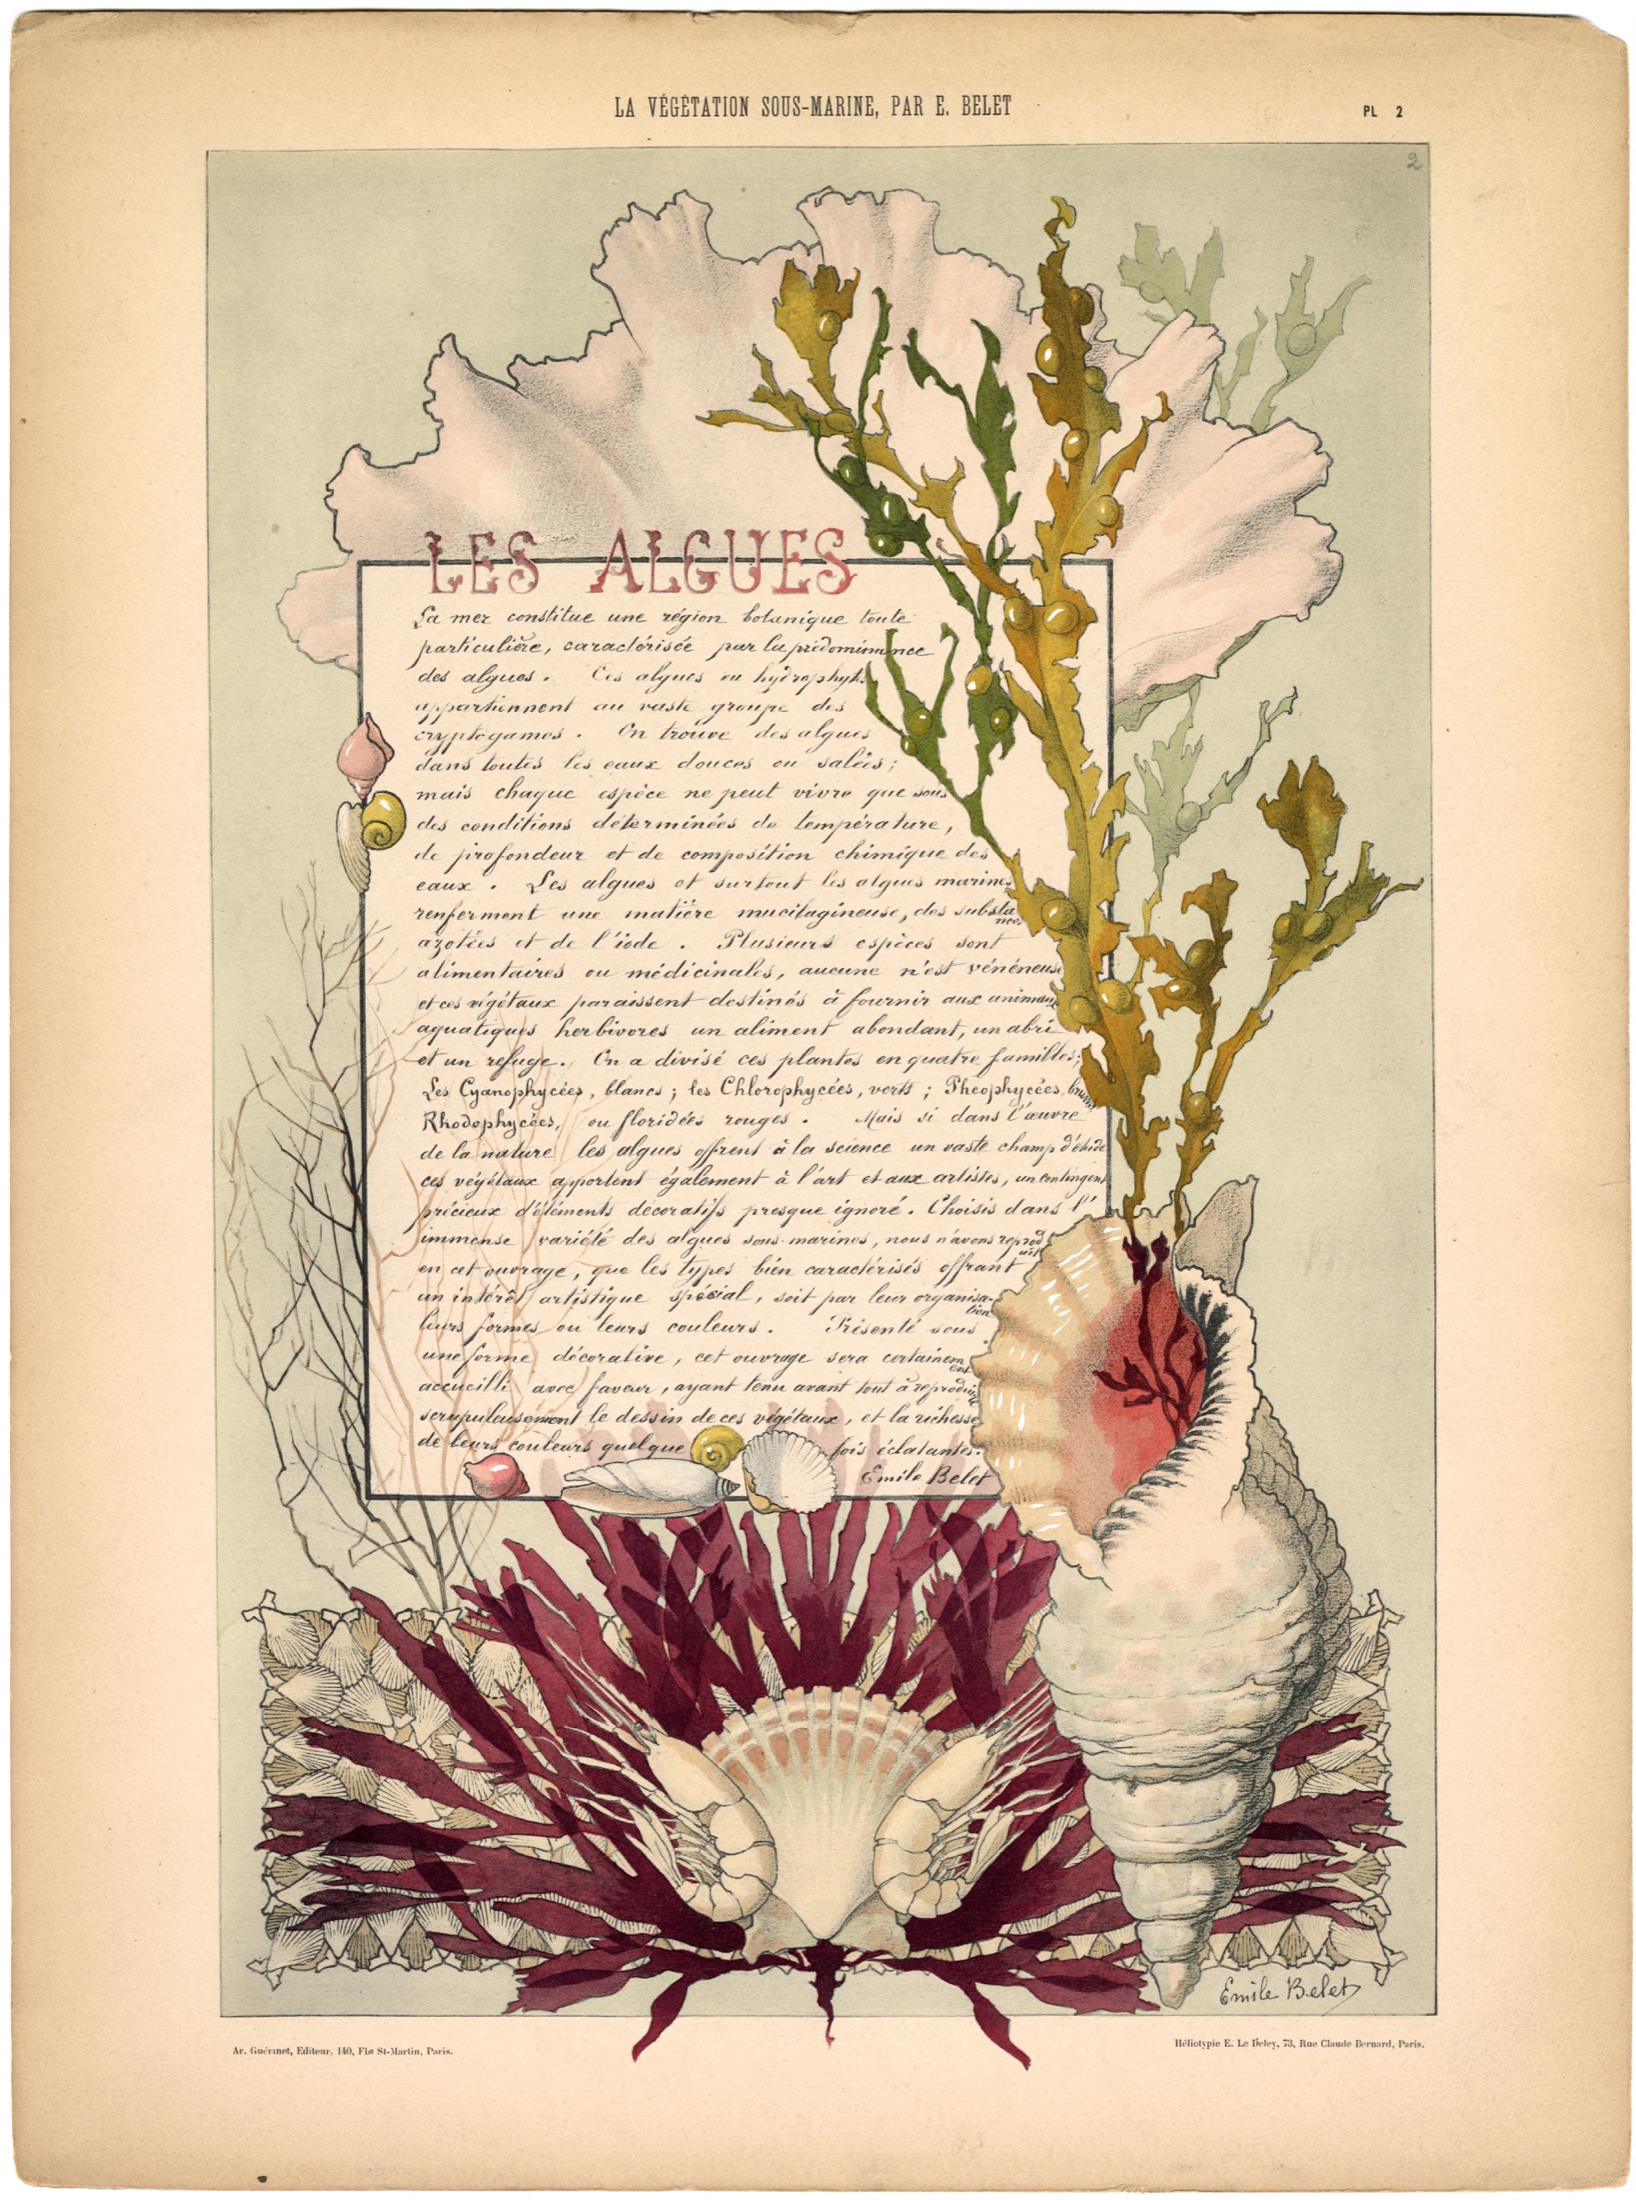 LA VÉGÉTATION SOUS-MARINE, PAR E. BELET
PL 2
2
LES ALGUES
La mer constitue une région botanique toute
particulière, caractérisée par la prédominance
des algues. Ces algues ou hydrophyt.
appartiennent au vaste groupe des
cryptogames. On trouve des algues
dans toutes les eaux douces ou salées;
mais chaque espèce ne peut vivre que sous
des conditions déterminées de température,
de profondeur et de composition chimique des
eaux. Les algues et surtout les algues marines
renferment une matière mucilagineuse, des substances
azotées et de l'iode. Plusieurs espèces sont
alimentaires ou médicinales, aucune n'est vénéneuse
et ces végétaux paraissent destinés à fournir aux animaux
aquatiques herbivores un aliment abondant, un abri
et un refuge. On a divisé ces plantes en quatre familles;
Les Cyanophycées, blancs; les Chlorophycées, verts; Pheophycées, bruns
Rhodophycées, ou floridées rouges. Mais si dans l'œuvre
de la nature les algues offrent à la science un vaste champ d'étude
ces végétaux apportent également à l'art et aux artistes, un contingent
précieux d'éléments décoratifs presque ignoré. Choisis dans l'
immense variété des algues sous-marines, nous n'avons reproduit
en cet ouvrage, que les types bien caractérisés offrant
un intérêt artistique spécial, soit par leur organisation
leurs formes ou leurs couleurs. Présenté sous
une forme décorative, cet ouvrage sera certainement
accueilli avec faveur, ayant tenu avant tout à reproduire
scrupuleusement le dessin de ces végétaux, et la richesse
de leurs couleurs quelque fois éclatantes.
Emile Belet
Emile Belet
Ar. Guérinet, Editeur, 140, Fbg St-Martin, Paris.
Héliotypie E. Le Deley, 73, Rue Claude Bernard, Paris.